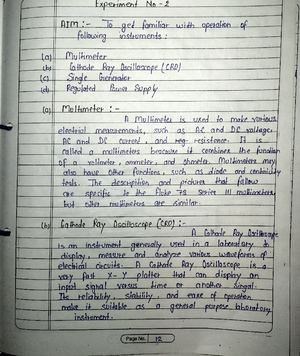 Experiment No - 2
AIM :- To get familiar with operation of
following instruments :
(a) Multimeter
(b) Cathode Ray Oscilloscope (CRO)
(c) Single Generater
(d) Regulated Power Supply
(a) Multimeter : -
A Multimeter is used to make various
electrical measurements, such as AC and DC voltage,
AC and DC current, and resistance. It is
called a multimeters because it combines the function
of a voltmeter, ammeter, and ohmeter. Multimeters may
also have other functions, such as diode and continuity
tests. The description and pictures that follow
are specific to the Fluke 73 Series III multimeters,
but other multimeters are similar.
(b) Cathode Ray Oscilloscope (CRO) :-
A Cathode Ray Oscilloscope
is an instrument generally used in a laboratory to
display, measure and analyze various waveforms of
electrical circuits. A Cathode Ray Oscilloscope is a
very fast X-Y plotter that can display an
input signal versus time or another singal.
The reliability, stability, and ease of operation
make it suitable as a general purpose laboratory
instrument.
Page No. 12